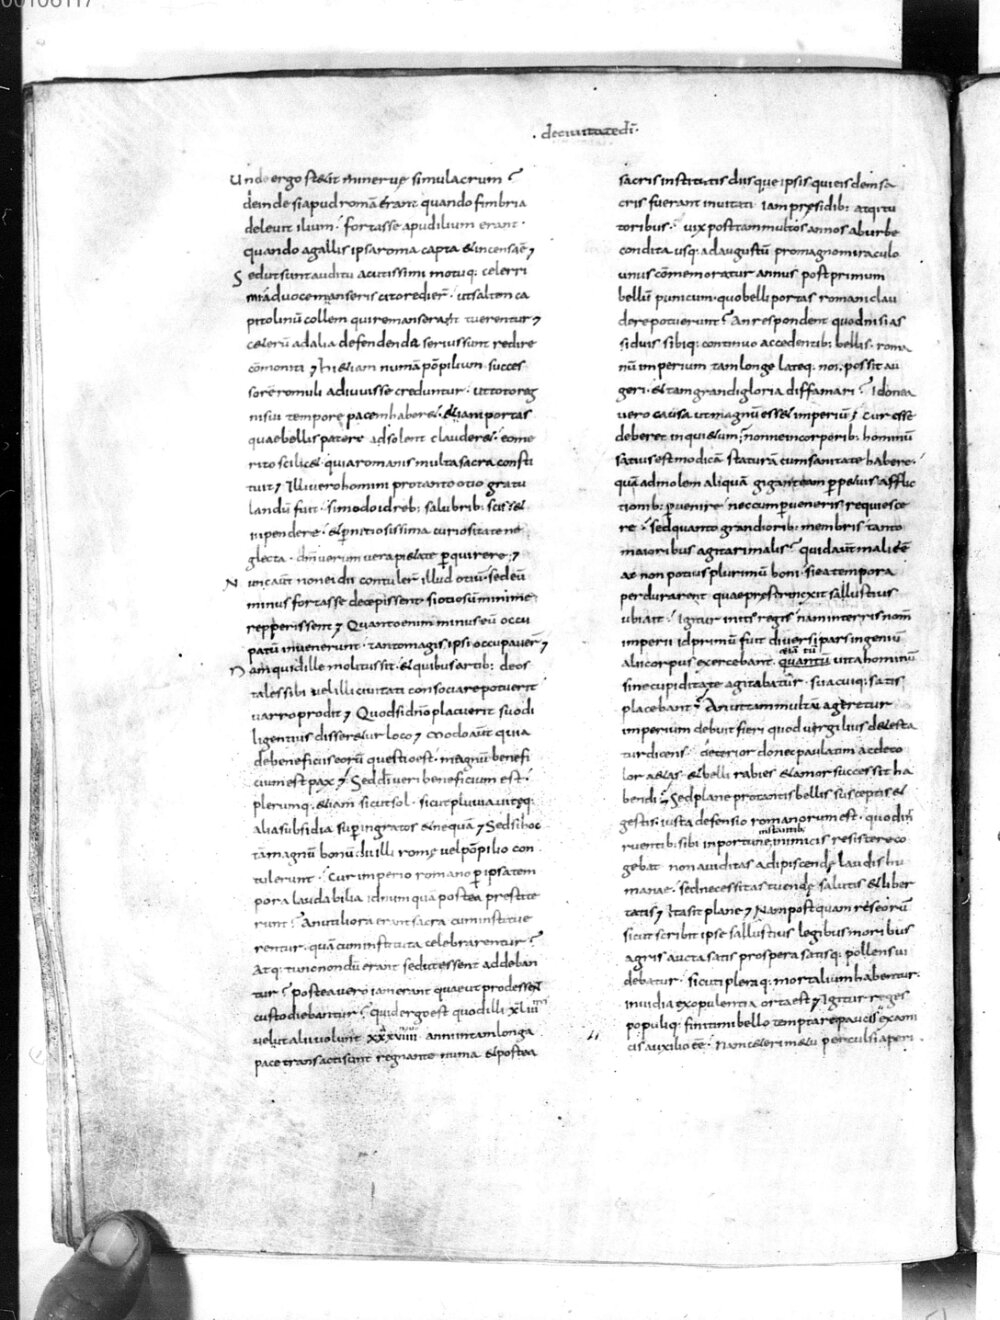 00106117
· deciuitatedī ·
Unde ergo stetit mineruę simulacrum ?
deinde siapud romā erant quando fimbria
deleuit ilium · fortasse apud ilium erant ·
quando agallis ipsaroma capta & incensa ē ;
Sed ut sunt auditu acutissimi motuq: celerri
mi aduocem anseris cito redier̄ · ut saltem ca
pitolinū collem qui remanserat tuerentur ;
Ceterū ad alia defendenda serius sunt redire
cōmoniti ; hi &iam numā pōpilium succes
sorē romuli adiuuisse creduntur · ut toto reg
ni sui tempore pacem haber& · &iam portas
quae bellis patere adsolent clauder& · eo me
rito scilic& · quia romanis multa sacra consti
tuit ; Illi uero homini pro tanto otio gratu
landū fuit · si modo id reb; salubrib; sciss&
inpendere · & pernitiosissima curiositate ne
glecta · dm̄ uerum uera pi&ate ꝑquirere ;
Nunc aūt non ei dii contuler̄ illud otiū · sed eū
minus fortasse decepissent si otiosū minime
repperissent ; Quanto enim minus eū occu
patū inuenerunt · tanto magis ipsi occupauer̄ ;
Nam quid ille molitus sit · & quibus artib: deos
tales sibi uel illi ciuitati consociare potuerit
uarro prodit ; Quod si dn̄o placuerit suo di
ligentius disser&ur loco ; Modo aūt quia
de beneficiis eorū questio est · magnū benefi
cium est pax ; Sed dī ueri beneficium est ·
plerumq: &iam sicut sol · sicut pluuia uiteq:
alia subsidia super ingratos & nequā ; Sed si hoc
tā magnū bonū dii illi rome uel pōpilio con
tulerunt · Cur imperio romano ꝑ ipsa tem
pora laudabilia id numquā postea prestite
runt ? An utiliora erant sacra cum instituе
rentur · quā cum instituta celebrarentur ?
Atq: tunc nondū erant sed ut essent addeban
tur ? postea uero iam erant quae ut prodessent
custodiebantur ? quid ergo est quod illi xliii
uel ut alii uolunt xxxviiii anni in tam longa
pace transacti sunt regnante numa & postea
sacris institutis diisque ipsis qui eisdem sa
cris fuerant inuitati iam presidib: atq: tu
toribus · uix post tam multos annos ab urbe
condita usq: ad augustū pro magno miraculo
unus cōmemoratur annus post primum
bellū punicum · quo belli portas romani clau
dere potuerunt ? An respondent quod nisi as
siduis sibiq: continuo accedentib; bellis · roma
nū imperium tam longe lateq: non possit au
geri · & tam grandi gloria diffamari ? Idonea
uero causa ut magnū ess& imperiū ; cur esse
deber& inqui&um ; nonne in corporib; hominū
satius est modicā staturā cum sanitate habere ·
quā ad molem aliquā giganteam ꝑp&uis afflic
tionib; ꝑuenire nec cum perueneris requiesce
re · sed quanto grandiorib; membris tanto
maioribus agitari malis ? quid aūt mali eēt
ac non potius plurimū boni · si ea tempora
perdurarent quae prestrinxit sallustius
ubi ait · Igitur initis regis nam in terris nom̄
imperii id primū fuit diuersi pars ingeniū
alii corpus exercebant
&iā tū
quantū uita hominū
sine cupiditate agitabatur · sua cuiq: satis
placebant ? An ut tam multū ager&ur
imperium debuit fieri quod uergilius det&a
tur dicens · deterior donec paulatim ac deco
lor a&as · & belli rabies & amor successit ha
bendi ; Sed plane pro tantis bellis susceptis &
gestis · iusta defensio romanorum est · quod ir
ruentib: sibi inportune inimicis resistere co
instantib;
gebat non auiditas adipiscende laudis hu
manae · sed necessitas tuende salutis & liber
tatis ; Ita sit plane ; Nam postquam res eorū
sicut scribit ipse sallustius legibus moribus
agris aucta satis prospera satisq: pollens ui
debatur · sicuti pleraq: mortalium habentur ·
inuidia ex opulentia orta est ; Igitur reges
populiq: finitimi bello temptare pauci ex ami
cis auxilio eē · Nam c&eri m&u perculsi a peri